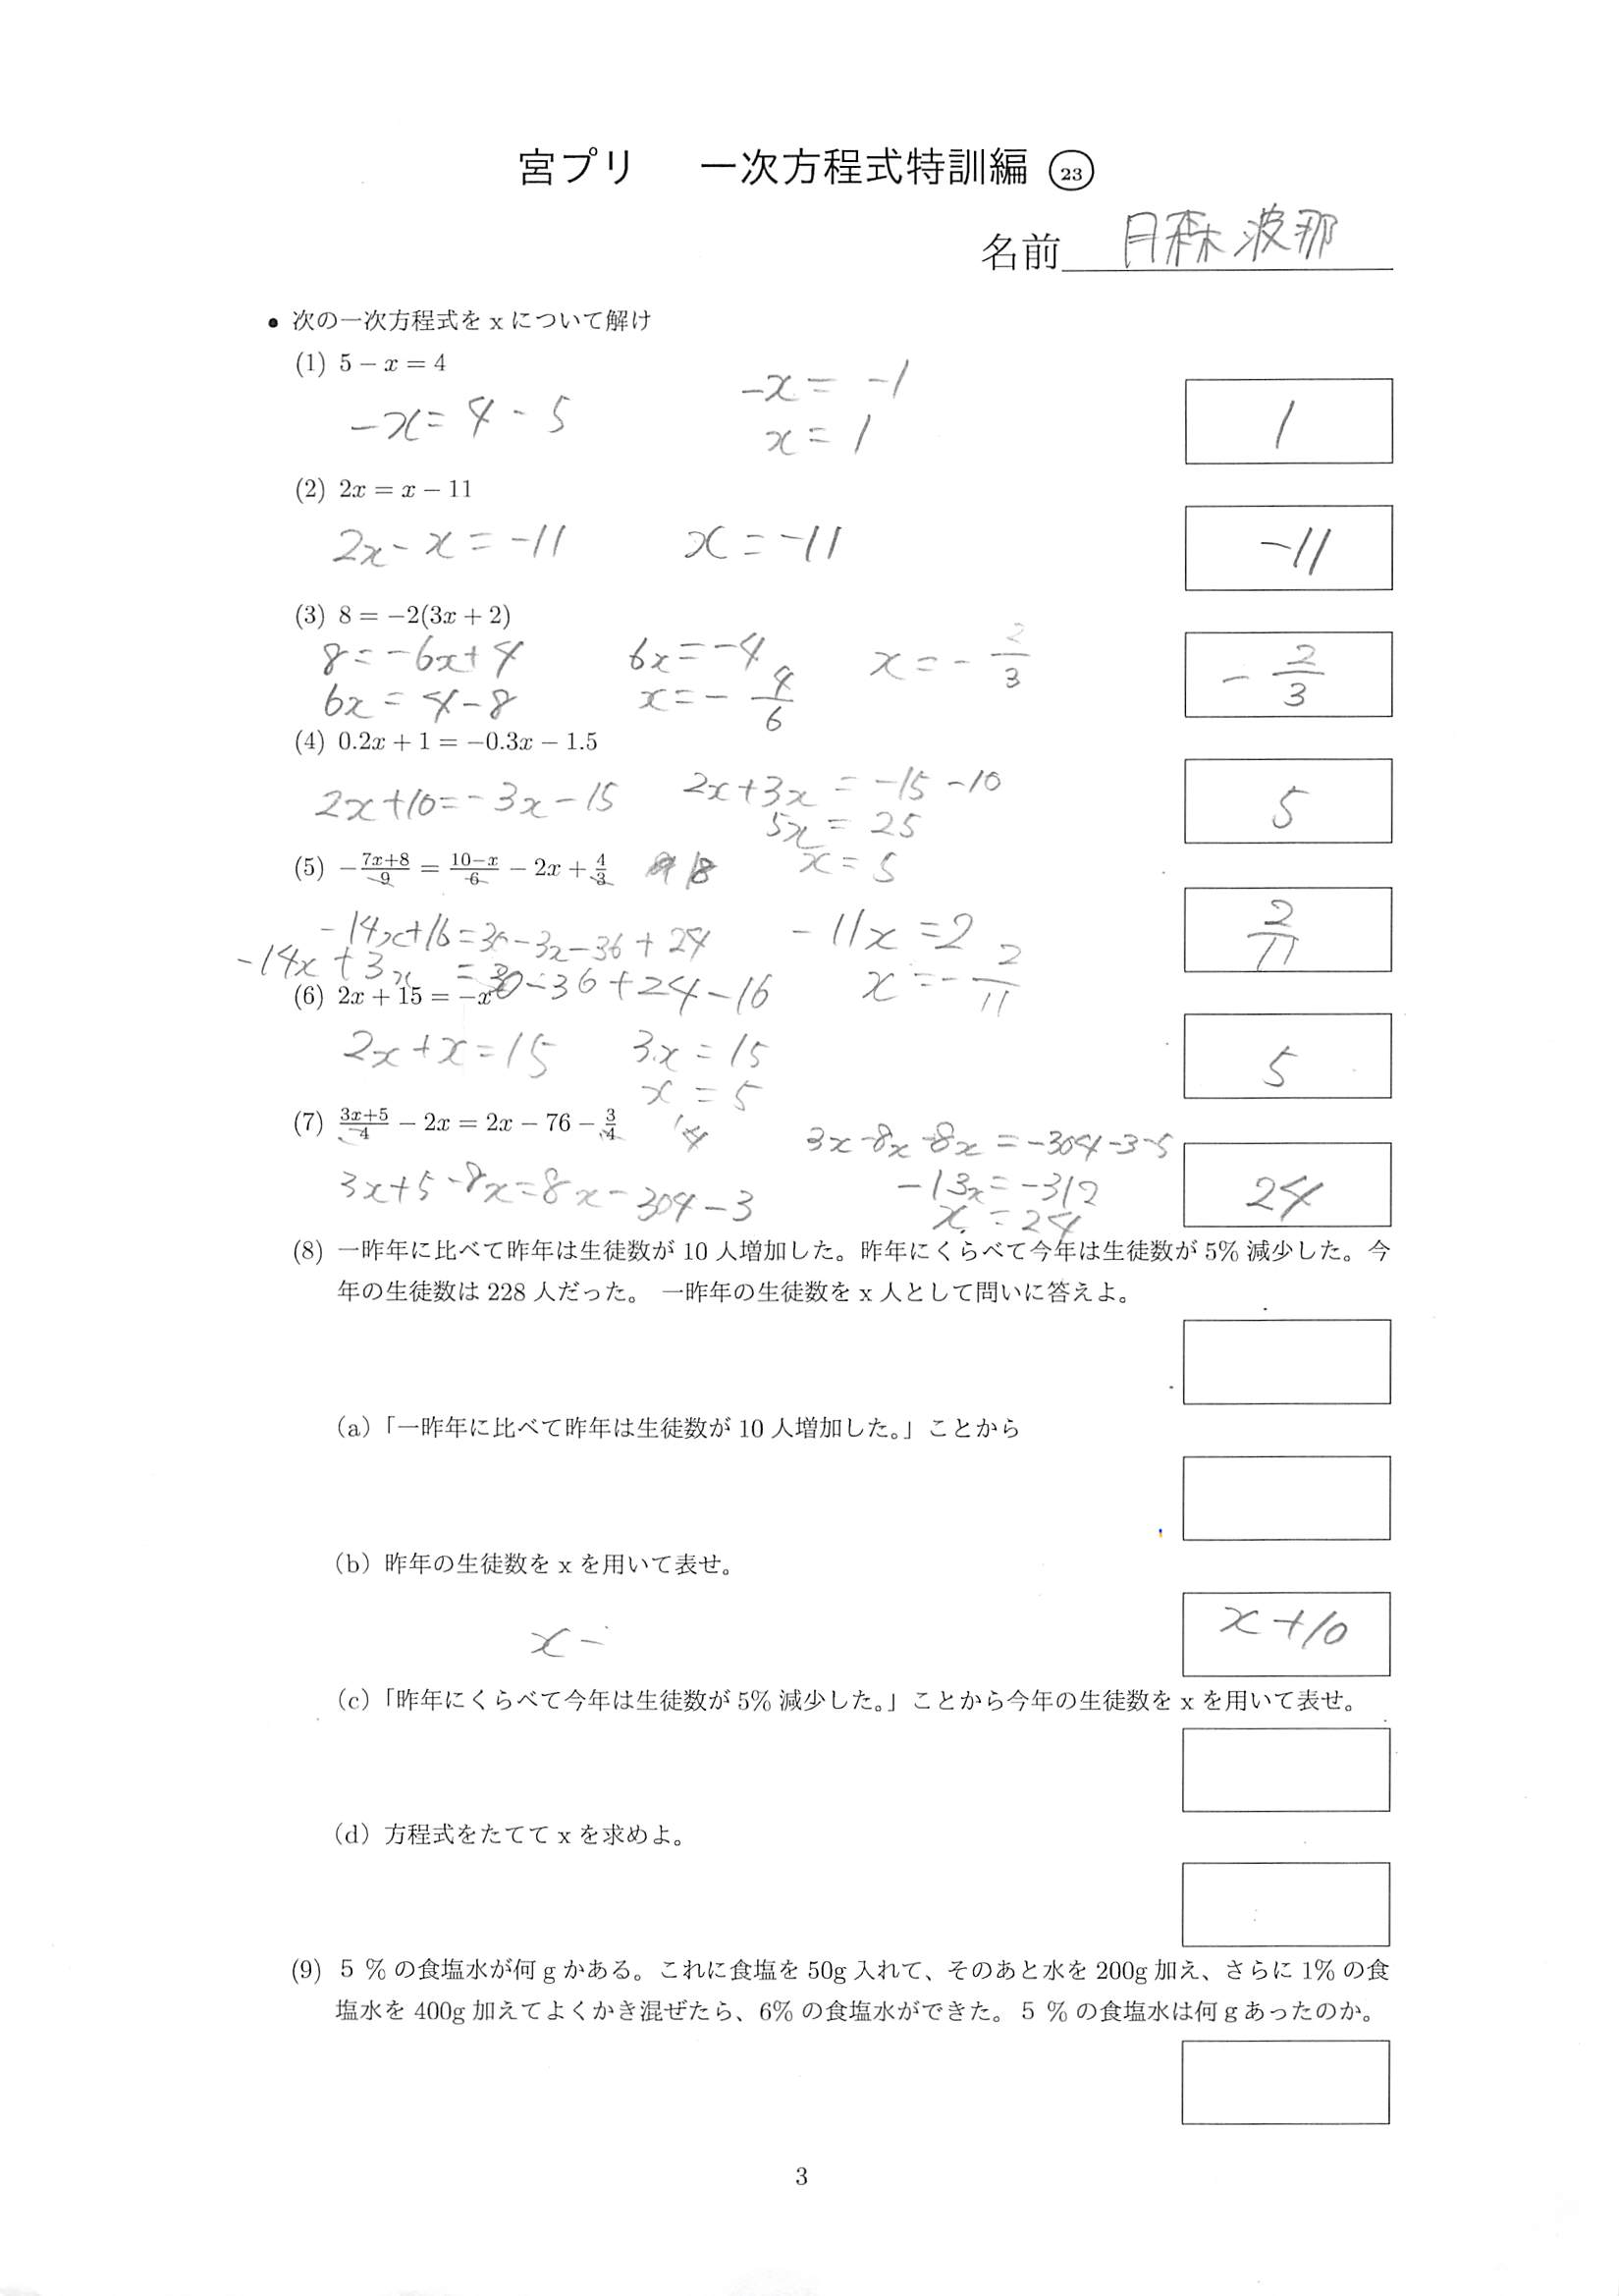 宮プリ 一次方程式特訓編 ㉓
名前 月森 波那
• 次の一次方程式を x について解け
(1) 5 − x = 4
−x = 4 − 5
−x = −1
x = 1
1
(2) 2x = x − 11
2x − x = −11 x = −11
−11
(3) 8 = −2(3x + 2)
8 = −6x + 4 6x = −4 x = − 2/3
6x = 4 − 8 x = − 4/6
− 2/3
(4) 0.2x + 1 = −0.3x − 1.5
2x + 10 = −3x − 15 2x + 3x = −15 − 10
5x = 25
x = 5
5
(5) −(7x+8)/9 = (10−x)/6 − 2x + 4/3 18
−14x + 16 = 30 − 3x − 36 + 24 −11x = 2
−14x + 3x = 30 − 36 + 24 − 16 x = − 2/11
2/11
(6) 2x + 15 = −x
2x + x = 15 3x = 15
x = 5
5
(7) (3x+5)/4 − 2x = 2x − 76 − 3/4 4
3x + 5 − 8x = 8x − 304 − 3
3x − 8x − 8x = −304 − 3 − 5
−13x = −312
x = 24
24
(8) 一昨年に比べて昨年は生徒数が 10 人増加した。昨年にくらべて今年は生徒数が 5% 減少した。今
年の生徒数は 228 人だった。 一昨年の生徒数を x 人として問いに答えよ。
(a)「一昨年に比べて昨年は生徒数が 10 人増加した。」ことから
(b) 昨年の生徒数を x を用いて表せ。
x −
x + 10
(c)「昨年にくらべて今年は生徒数が 5% 減少した。」ことから今年の生徒数を x を用いて表せ。
(d) 方程式をたてて x を求めよ。
(9) ５％の食塩水が何 g かある。これに食塩を 50g 入れて、そのあと水を 200g 加え、さらに 1% の食
塩水を 400g 加えてよくかき混ぜたら、6% の食塩水ができた。５％の食塩水は何 g あったのか。
3